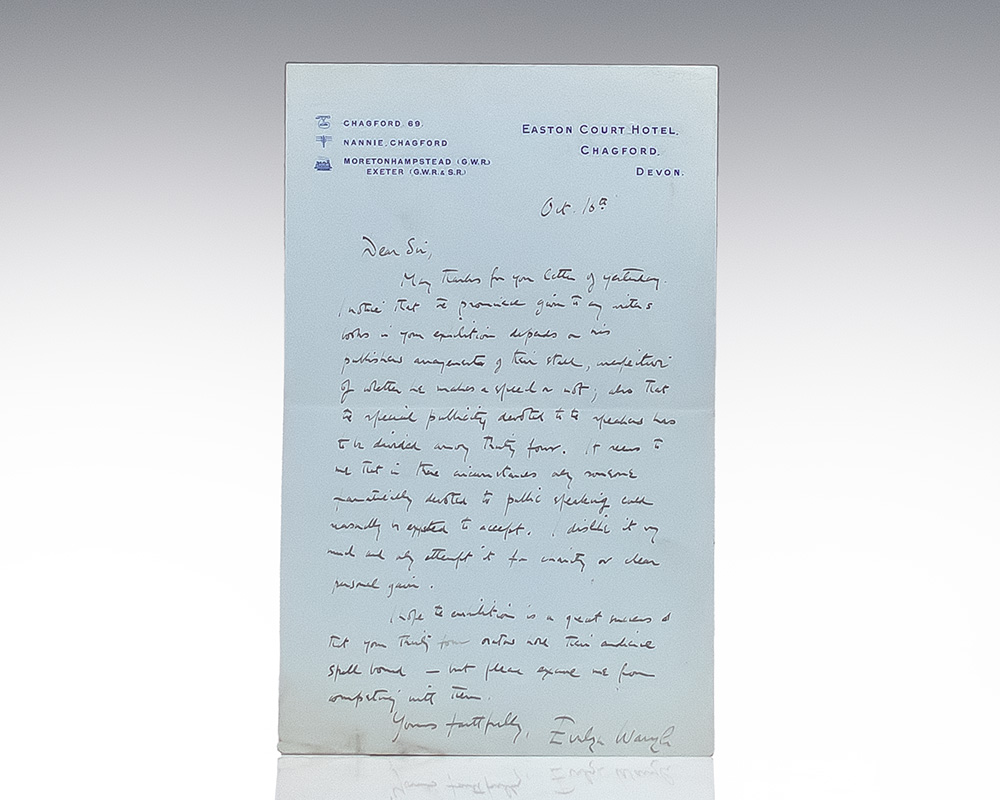 CHAGFORD 69.
NANNIE, CHAGFORD
MORETONHAMPSTEAD (G.W.R.)
EXETER (G.W.R. & S.R.)
EASTON COURT HOTEL,
CHAGFORD.
DEVON.
Oct. 16th
Dear Sir,
Many thanks for your letter of yesterday.
I notice that the prominence given to any writer's
books in your exhibition depends on his
publishers arrangements of their stall, irrespective
of whether he makes a speech or not; also that
the special publicity devoted to the speakers has
to be divided among thirty four. It seems to
me that in these circumstances only someone
devoted to public speaking could
reasonably be expected to accept. I dislike it very
much and only attempt it for charity or clear
personal gain.
I hope the exhibition is a great success &
that your thirty four orators hold their audience
spell bound — but please excuse me from
competing with them.
Yours faithfully,
Evelyn Waugh